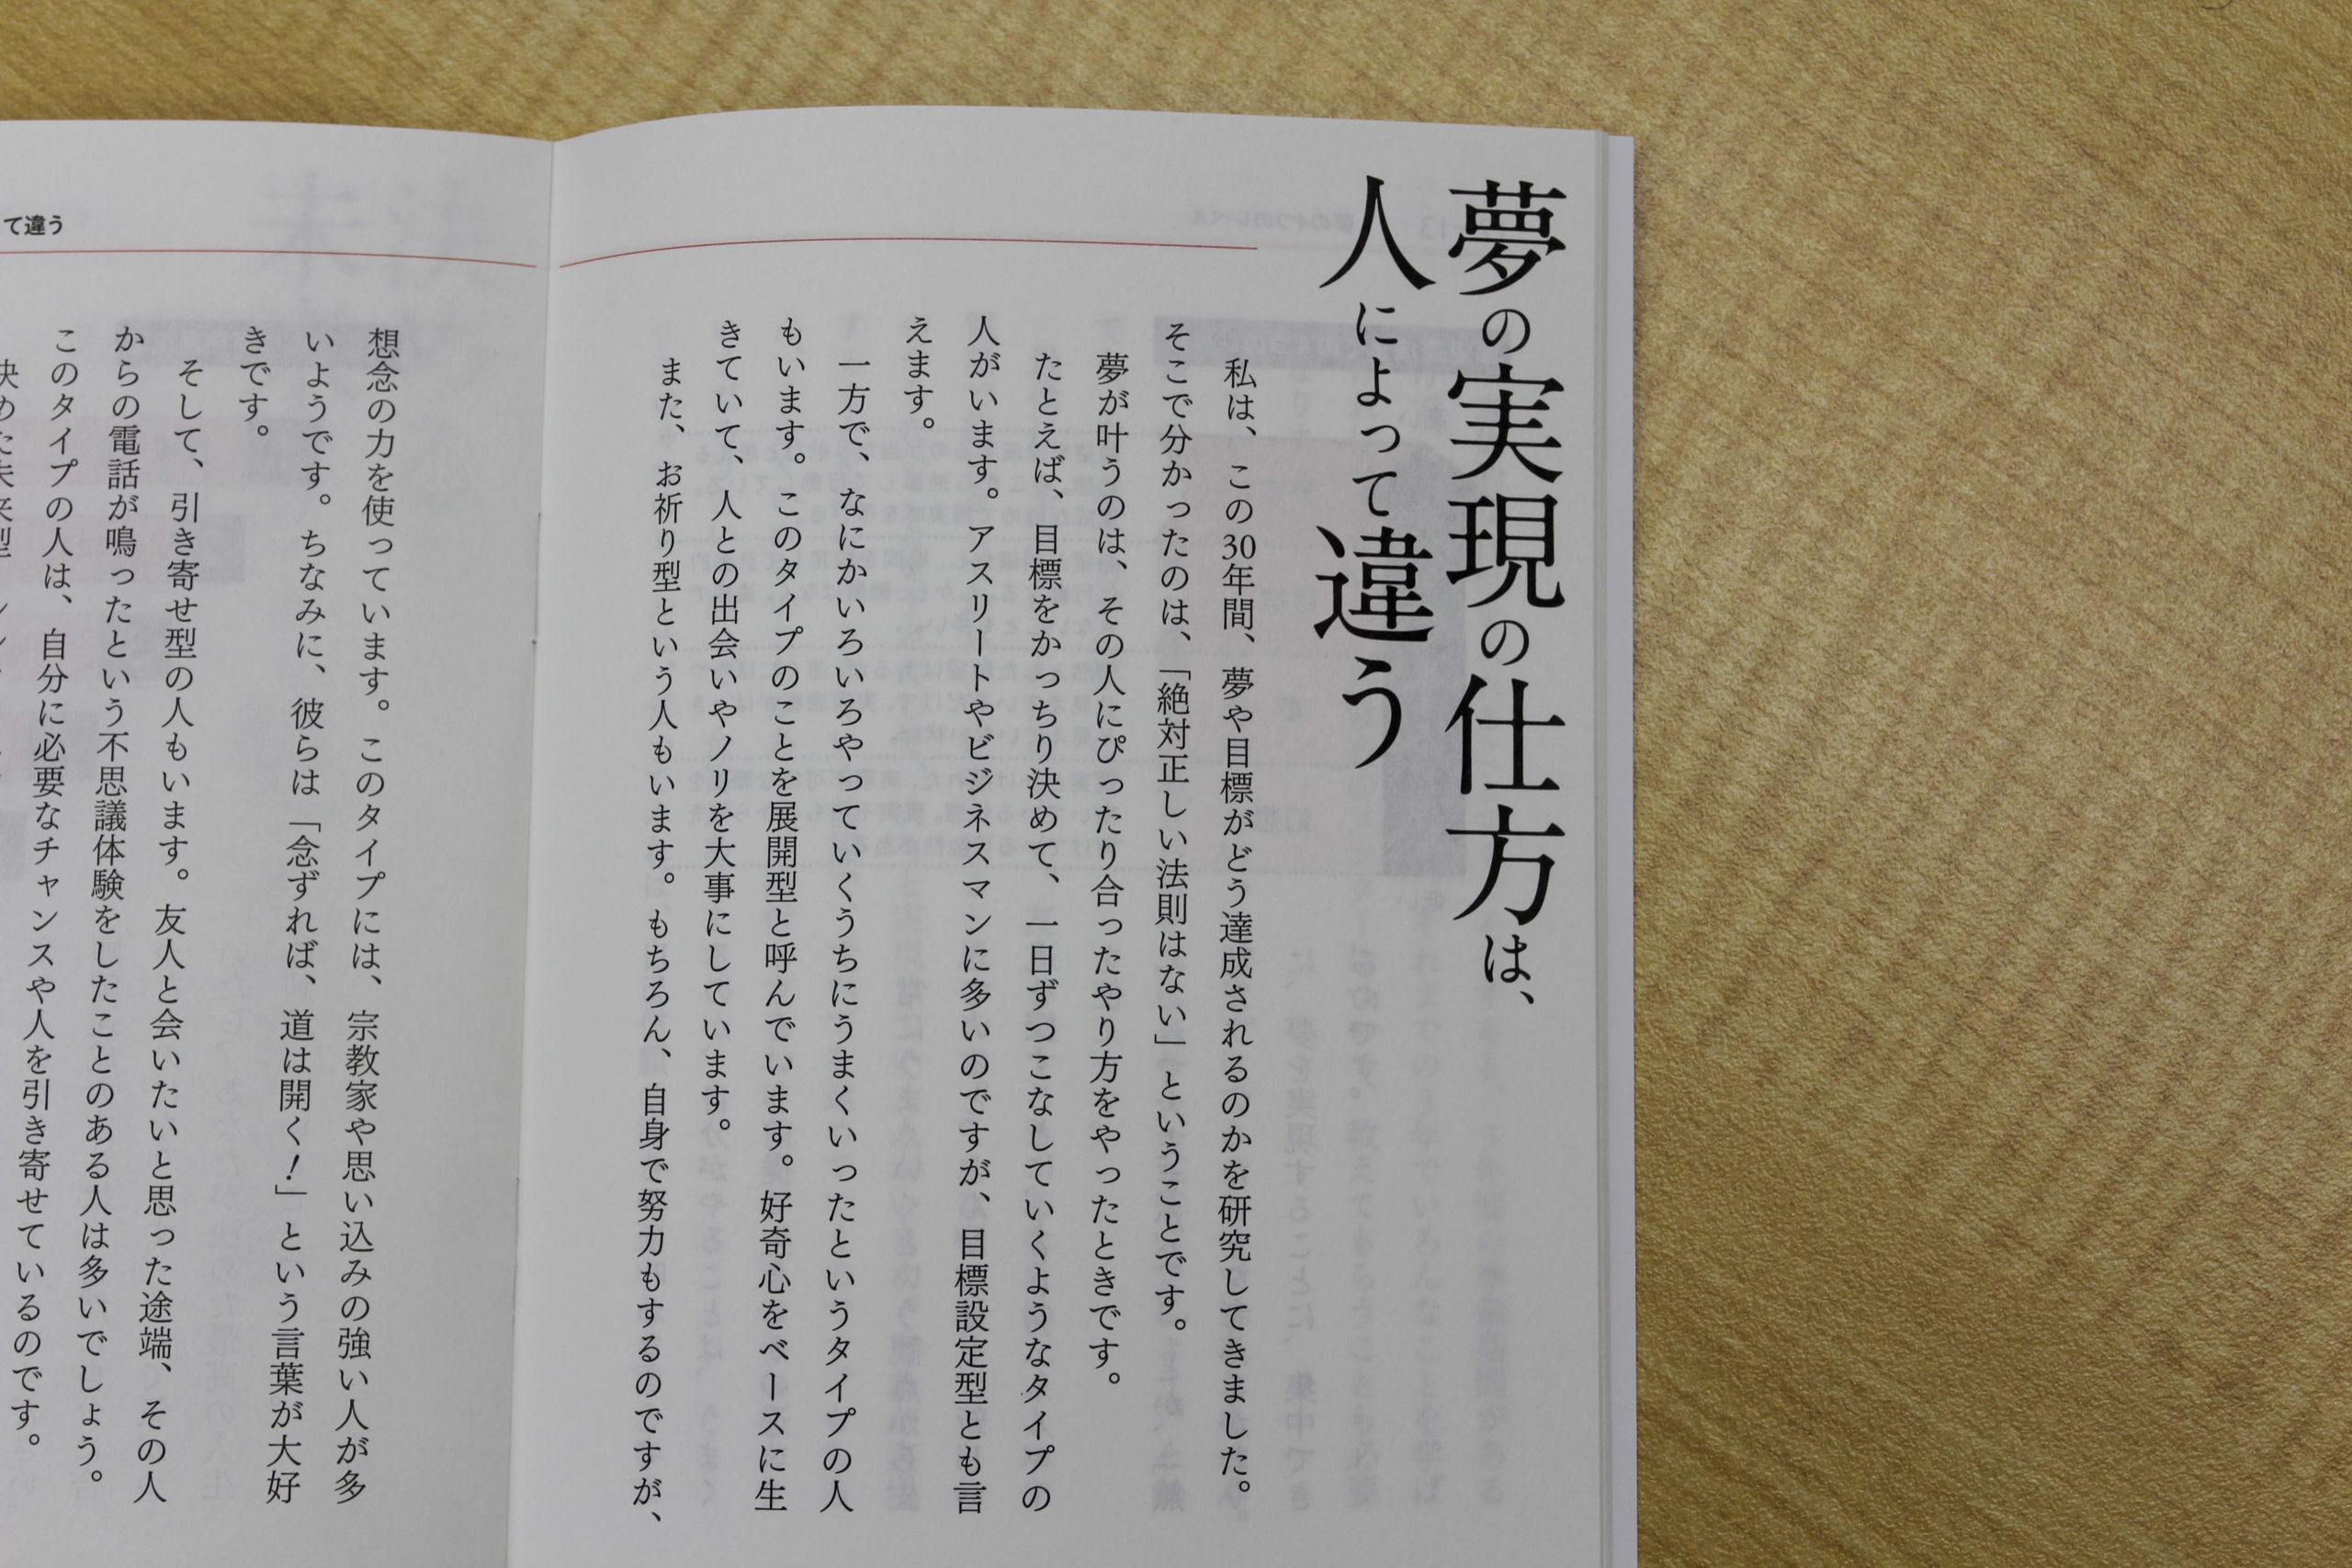 夢の実現の仕方は、
人によって違う
私は、この30年間、夢や目標がどう達成されるのかを研究してきました。
そこで分かったのは、「絶対正しい法則はない」ということです。
夢が叶うのは、その人にぴったり合ったやり方をやったときです。
たとえば、目標をかっちり決めて、一日ずつこなしていくようなタイプの
人がいます。アスリートやビジネスマンに多いのですが、目標設定型とも言
えます。
一方で、なにかいろいろやっていくうちにうまくいったというタイプの人
もいます。このタイプのことを展開型と呼んでいます。好奇心をベースに生
きていて、人との出会いやノリを大事にしています。
また、お祈り型という人もいます。もちろん、自身で努力もするのですが、
て違う
想念の力を使っています。このタイプには、宗教家や思い込みの強い人が多
いようです。ちなみに、彼らは「念ずれば、道は開く！」という言葉が大好
きです。
そして、引き寄せ型の人もいます。友人と会いたいと思った途端、その人
からの電話が鳴ったという不思議体験をしたことのある人は多いでしょう。
このタイプの人は、自分に必要なチャンスや人を引き寄せているのです。